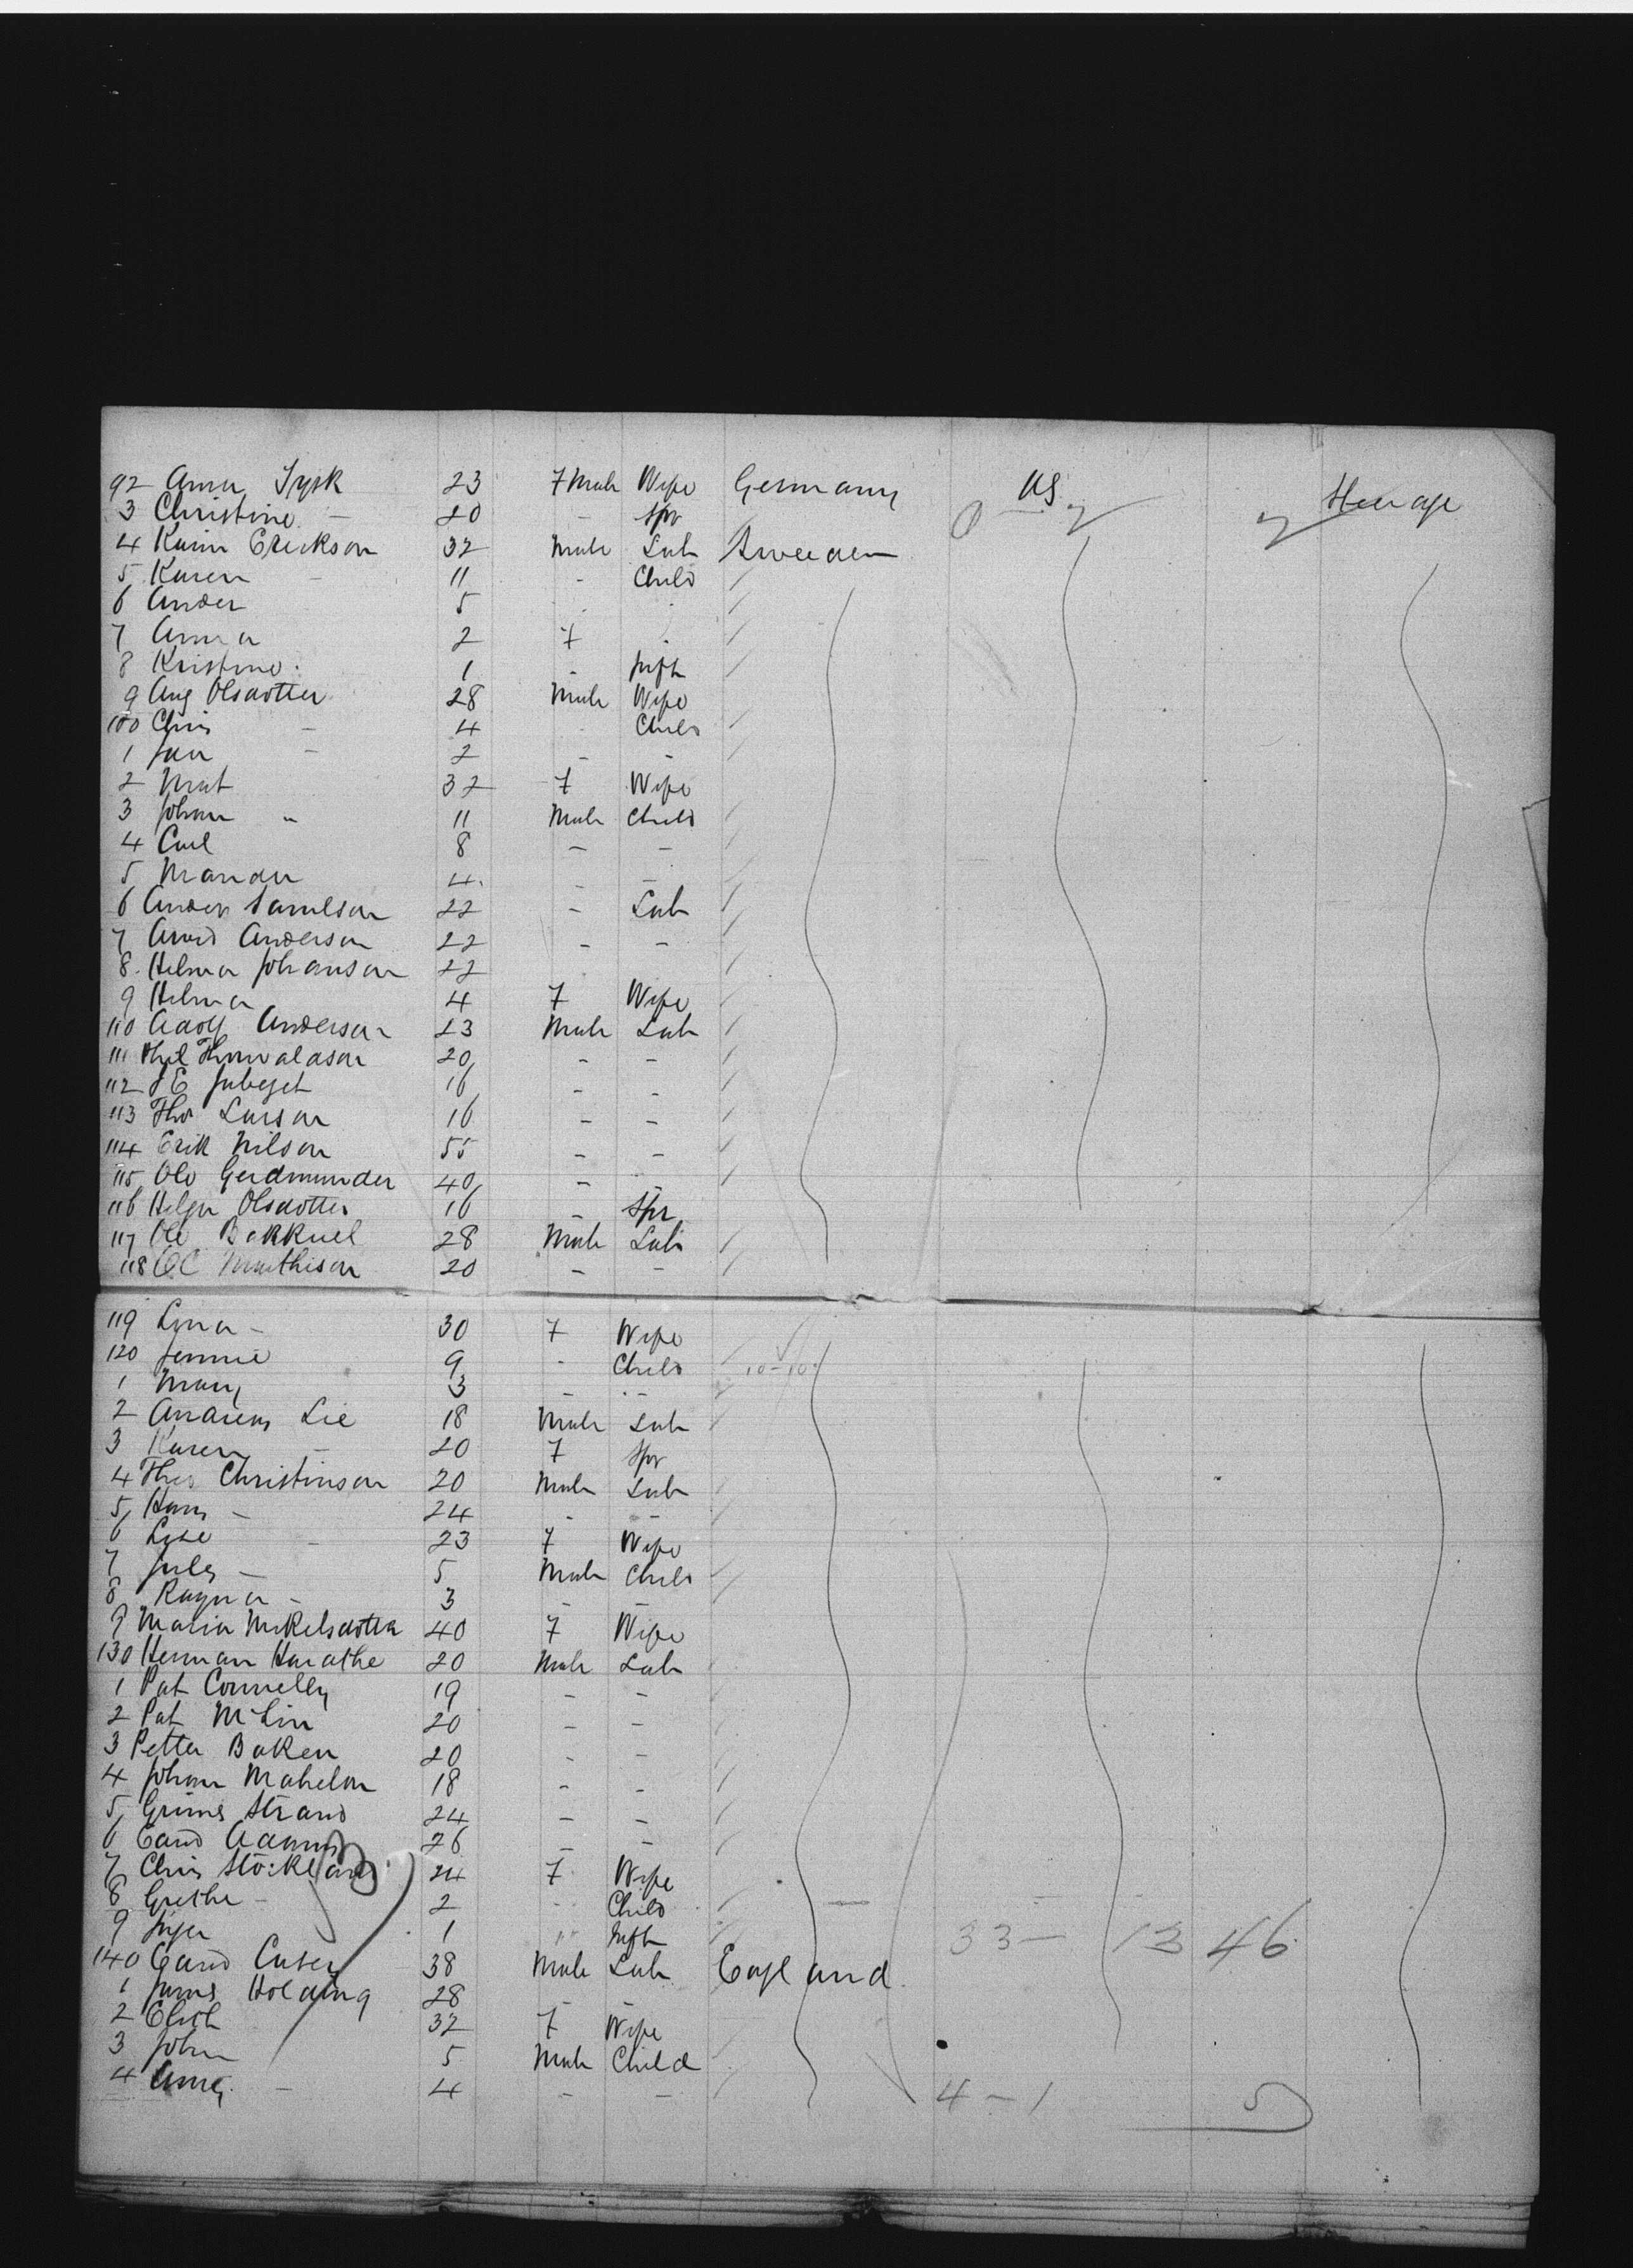 92 Anna Tysk 23 7male Wife Germany US Steerage
3 Christine - 20 - Spr
4 Karin Erickson 32 Male Lab Sweeden
5 Karen - 11 - Child
6 Ander 5
7 Anna 2 7
8 Kristine 1 - Inft
9 Aug Olsdotter 28 Male Wife
100 Chris - 4 Child
1 Jan - 2 - -
2 Mat 32 7 Wife
3 Johan " 11 Male Child
4 Carl 8 - -
5 4 - -
6 Anders Samelson 22 - Lab
7 Arvid Anderson 22 - -
8 Helma Johanson 22
9 Helma 4 7 Wife
110 Adolf Anderson 23 Male Lab
111 20 - -
112 16 - -
113 Thor Larson 16 - -
114 Erik Nilson 55 - -
115 Olo Gudmunder 40 - -
116 Helga Olsdotter 16 - Spr
117 Ole Bakkuel 28 Male Lab
118 OC Mathison 20 - -
119 Lina - 30 7 Wife
120 Jennie 9 - Child 10-10
1 Mary 3 - -
2 Andreas Lie 18 Male Lab
3 Karen - 20 7 Spr
4 Theo Christinson 20 Male Lab
5 Hans - 24 - -
6 Lise - 23 7 Wife
7 Jules - 5 Male Child
8 Ragna - 3 - -
9 Maria Mikelsdotter 40 7 Wife
130 Herman Harathe 20 Male Lab
1 Pat Connelly 19 - -
2 Pat McLin 20 - -
3 Petter Baken 20 - -
4 Johan Mahelon 18 - -
5 Grims Strand 24 - -
6 Adams 26 - -
7 Chris Stockland 24 7 Wife
8 Grethe - 2 - Child
9 Inger 1 " Inft 33 - 13 46
140 Casey 38 Male Lab England
1 James Holding 28 - -
2 Elisth 32 7 Wife
3 John 5 Male Child
4 Amy - 4 - - 4 - 1 5